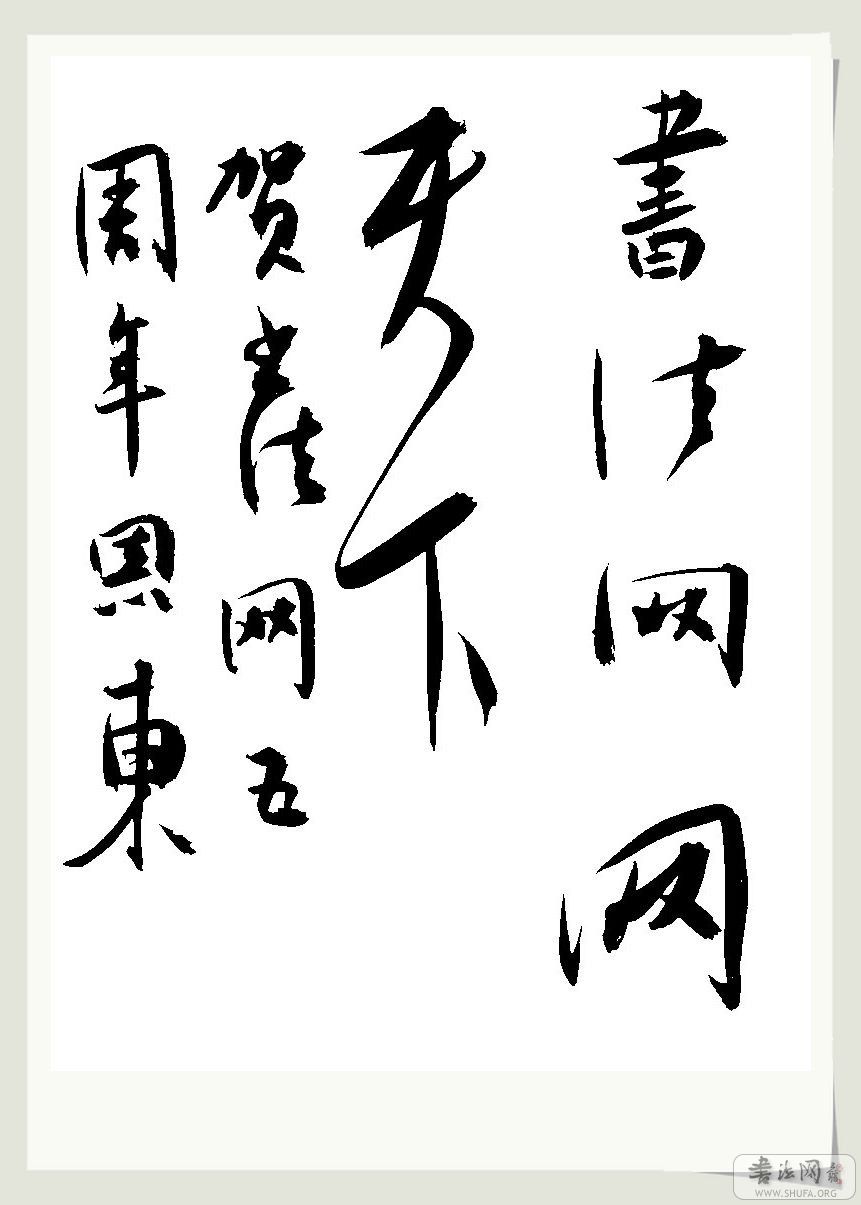 書法网网
天下
贺書法网五
周年恩東
書法网
WWW.SHUFA.ORG